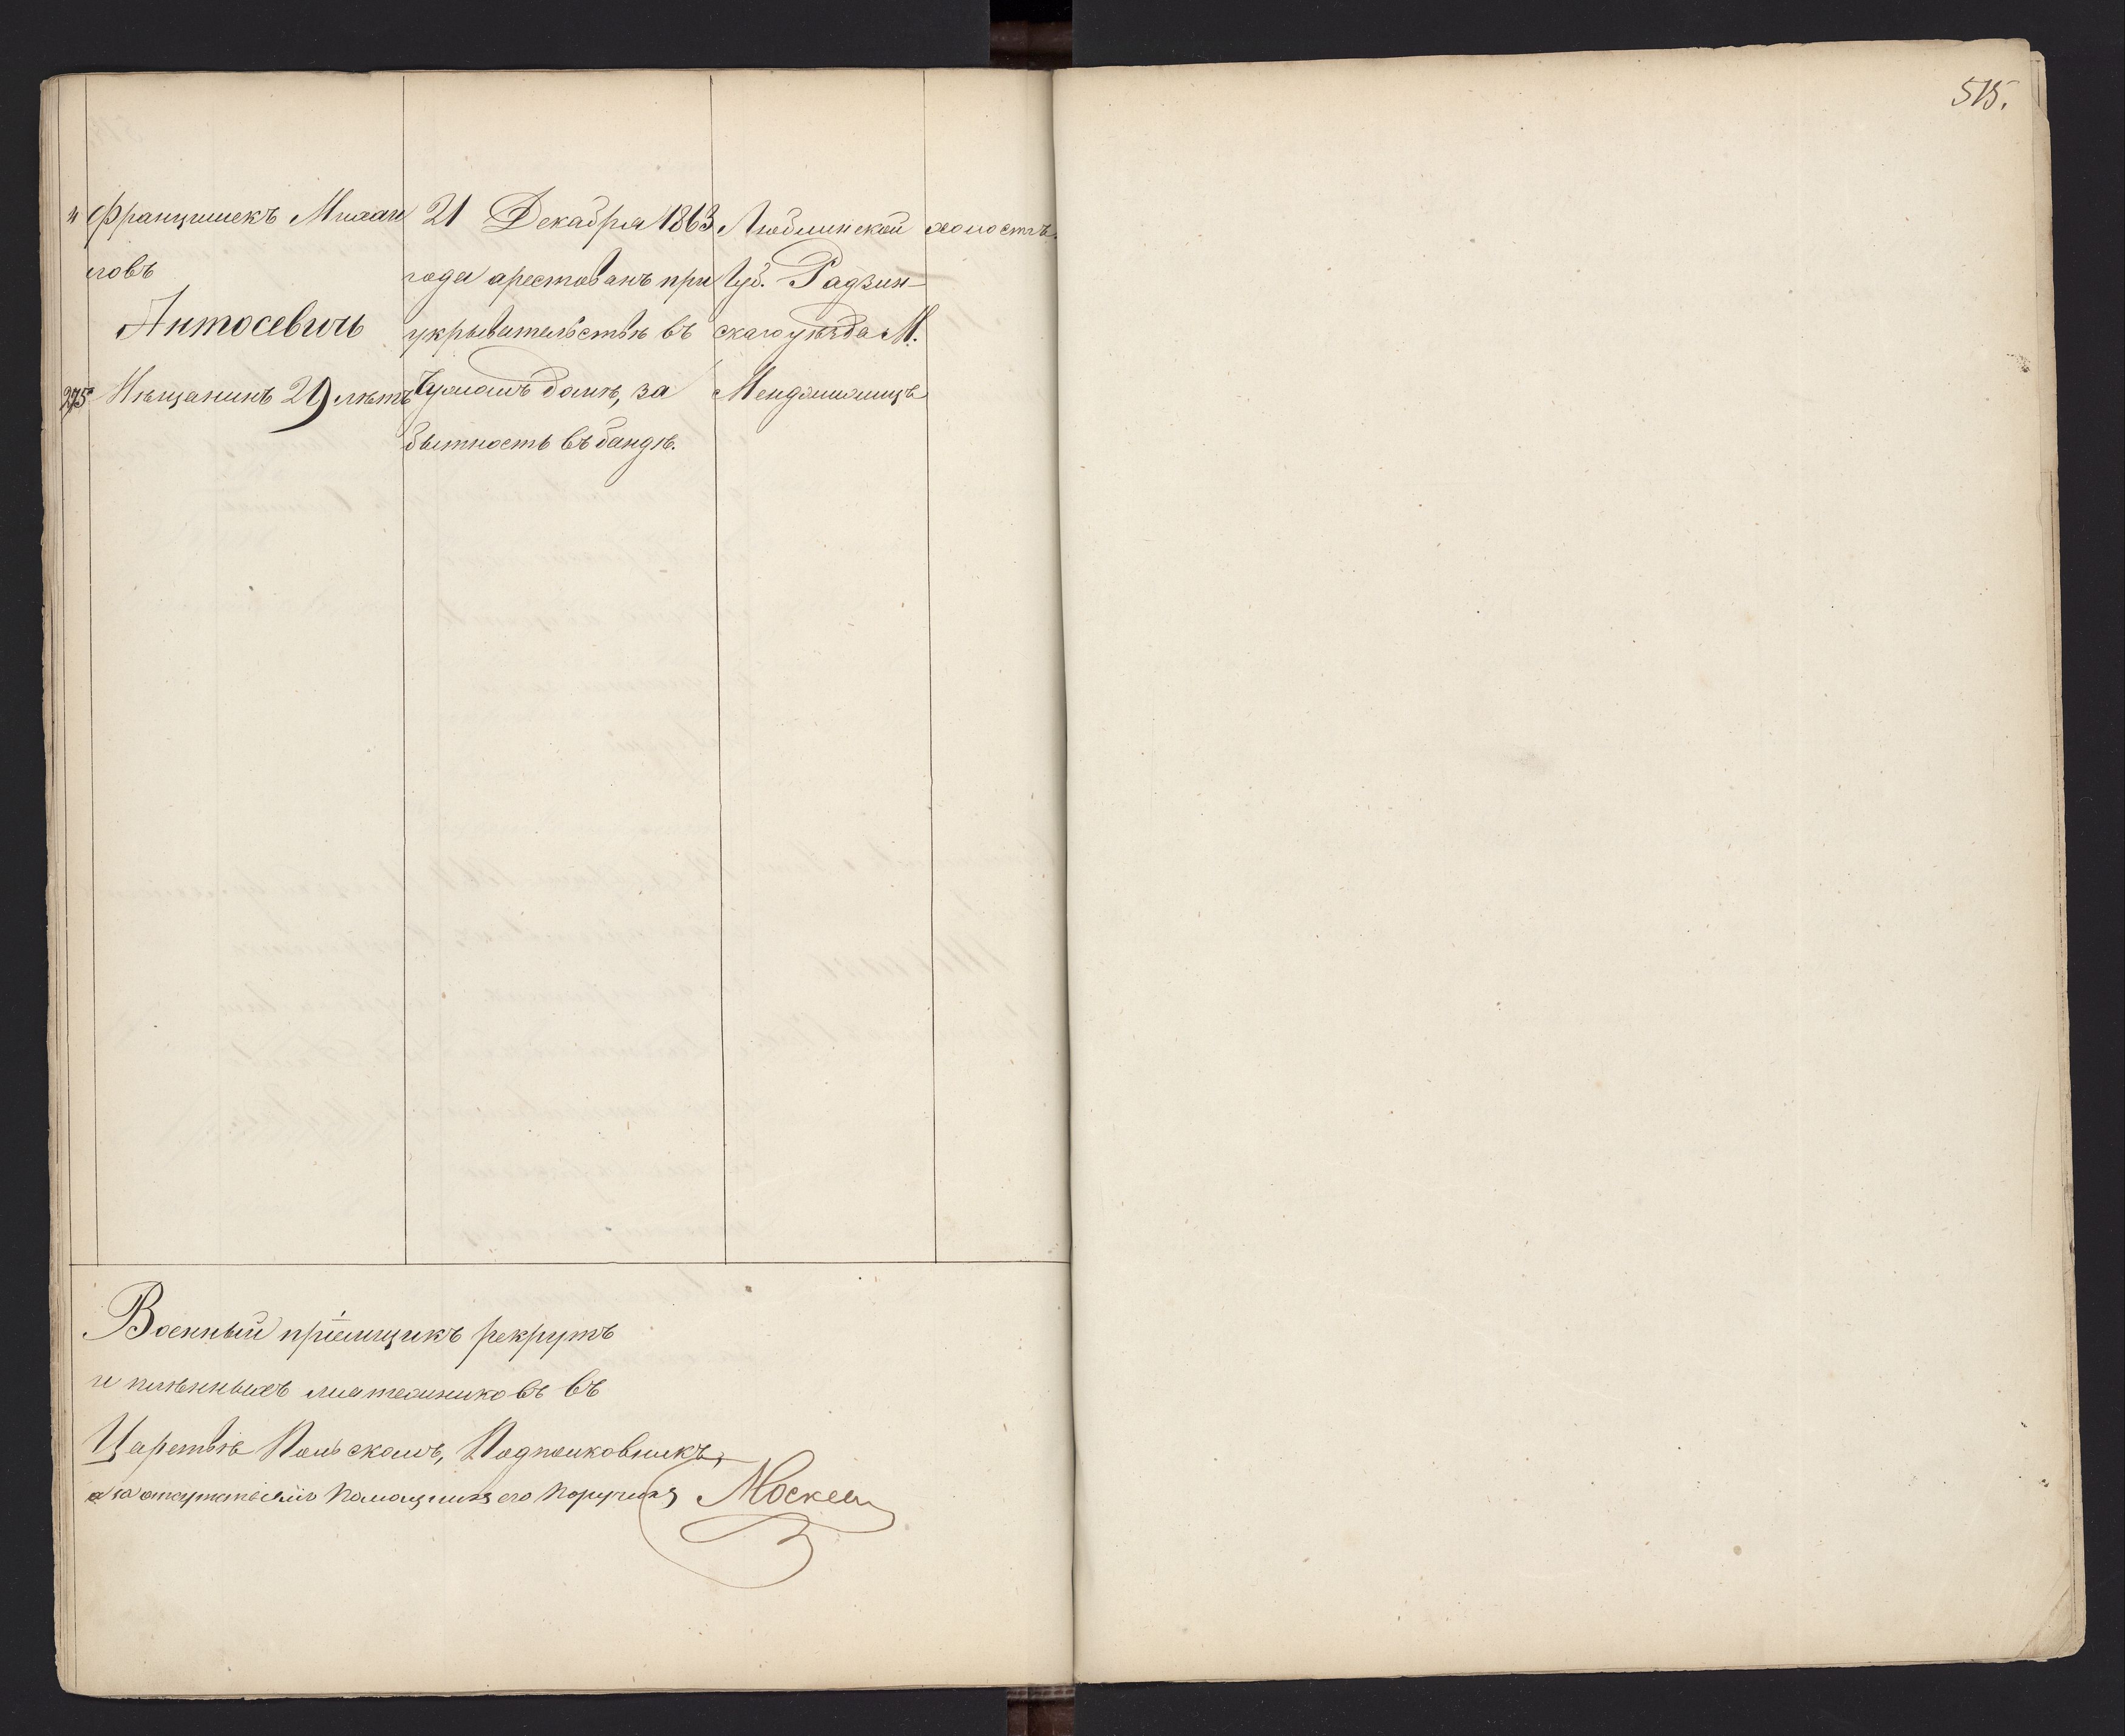 515.
" Францишекъ Михаи
ловъ
Антосевичъ
275 Мѣщанинъ 29 лѣтъ
21 Декабря 1863
года арестованъ при
укрывательствѣ въ
чужомъ домѣ, за
бытность въ бандѣ.
Люблинской
Губ. Радзин-
скаго уѣзда М.
Мендзижицъ
холостъ.
Военный пріемщикъ рекрутъ
и плѣнныхъ мятежниковъ въ
Царствѣ Польскомъ, Подполковникъ,
а за отсутствіемъ помощникъ его Поручикъ